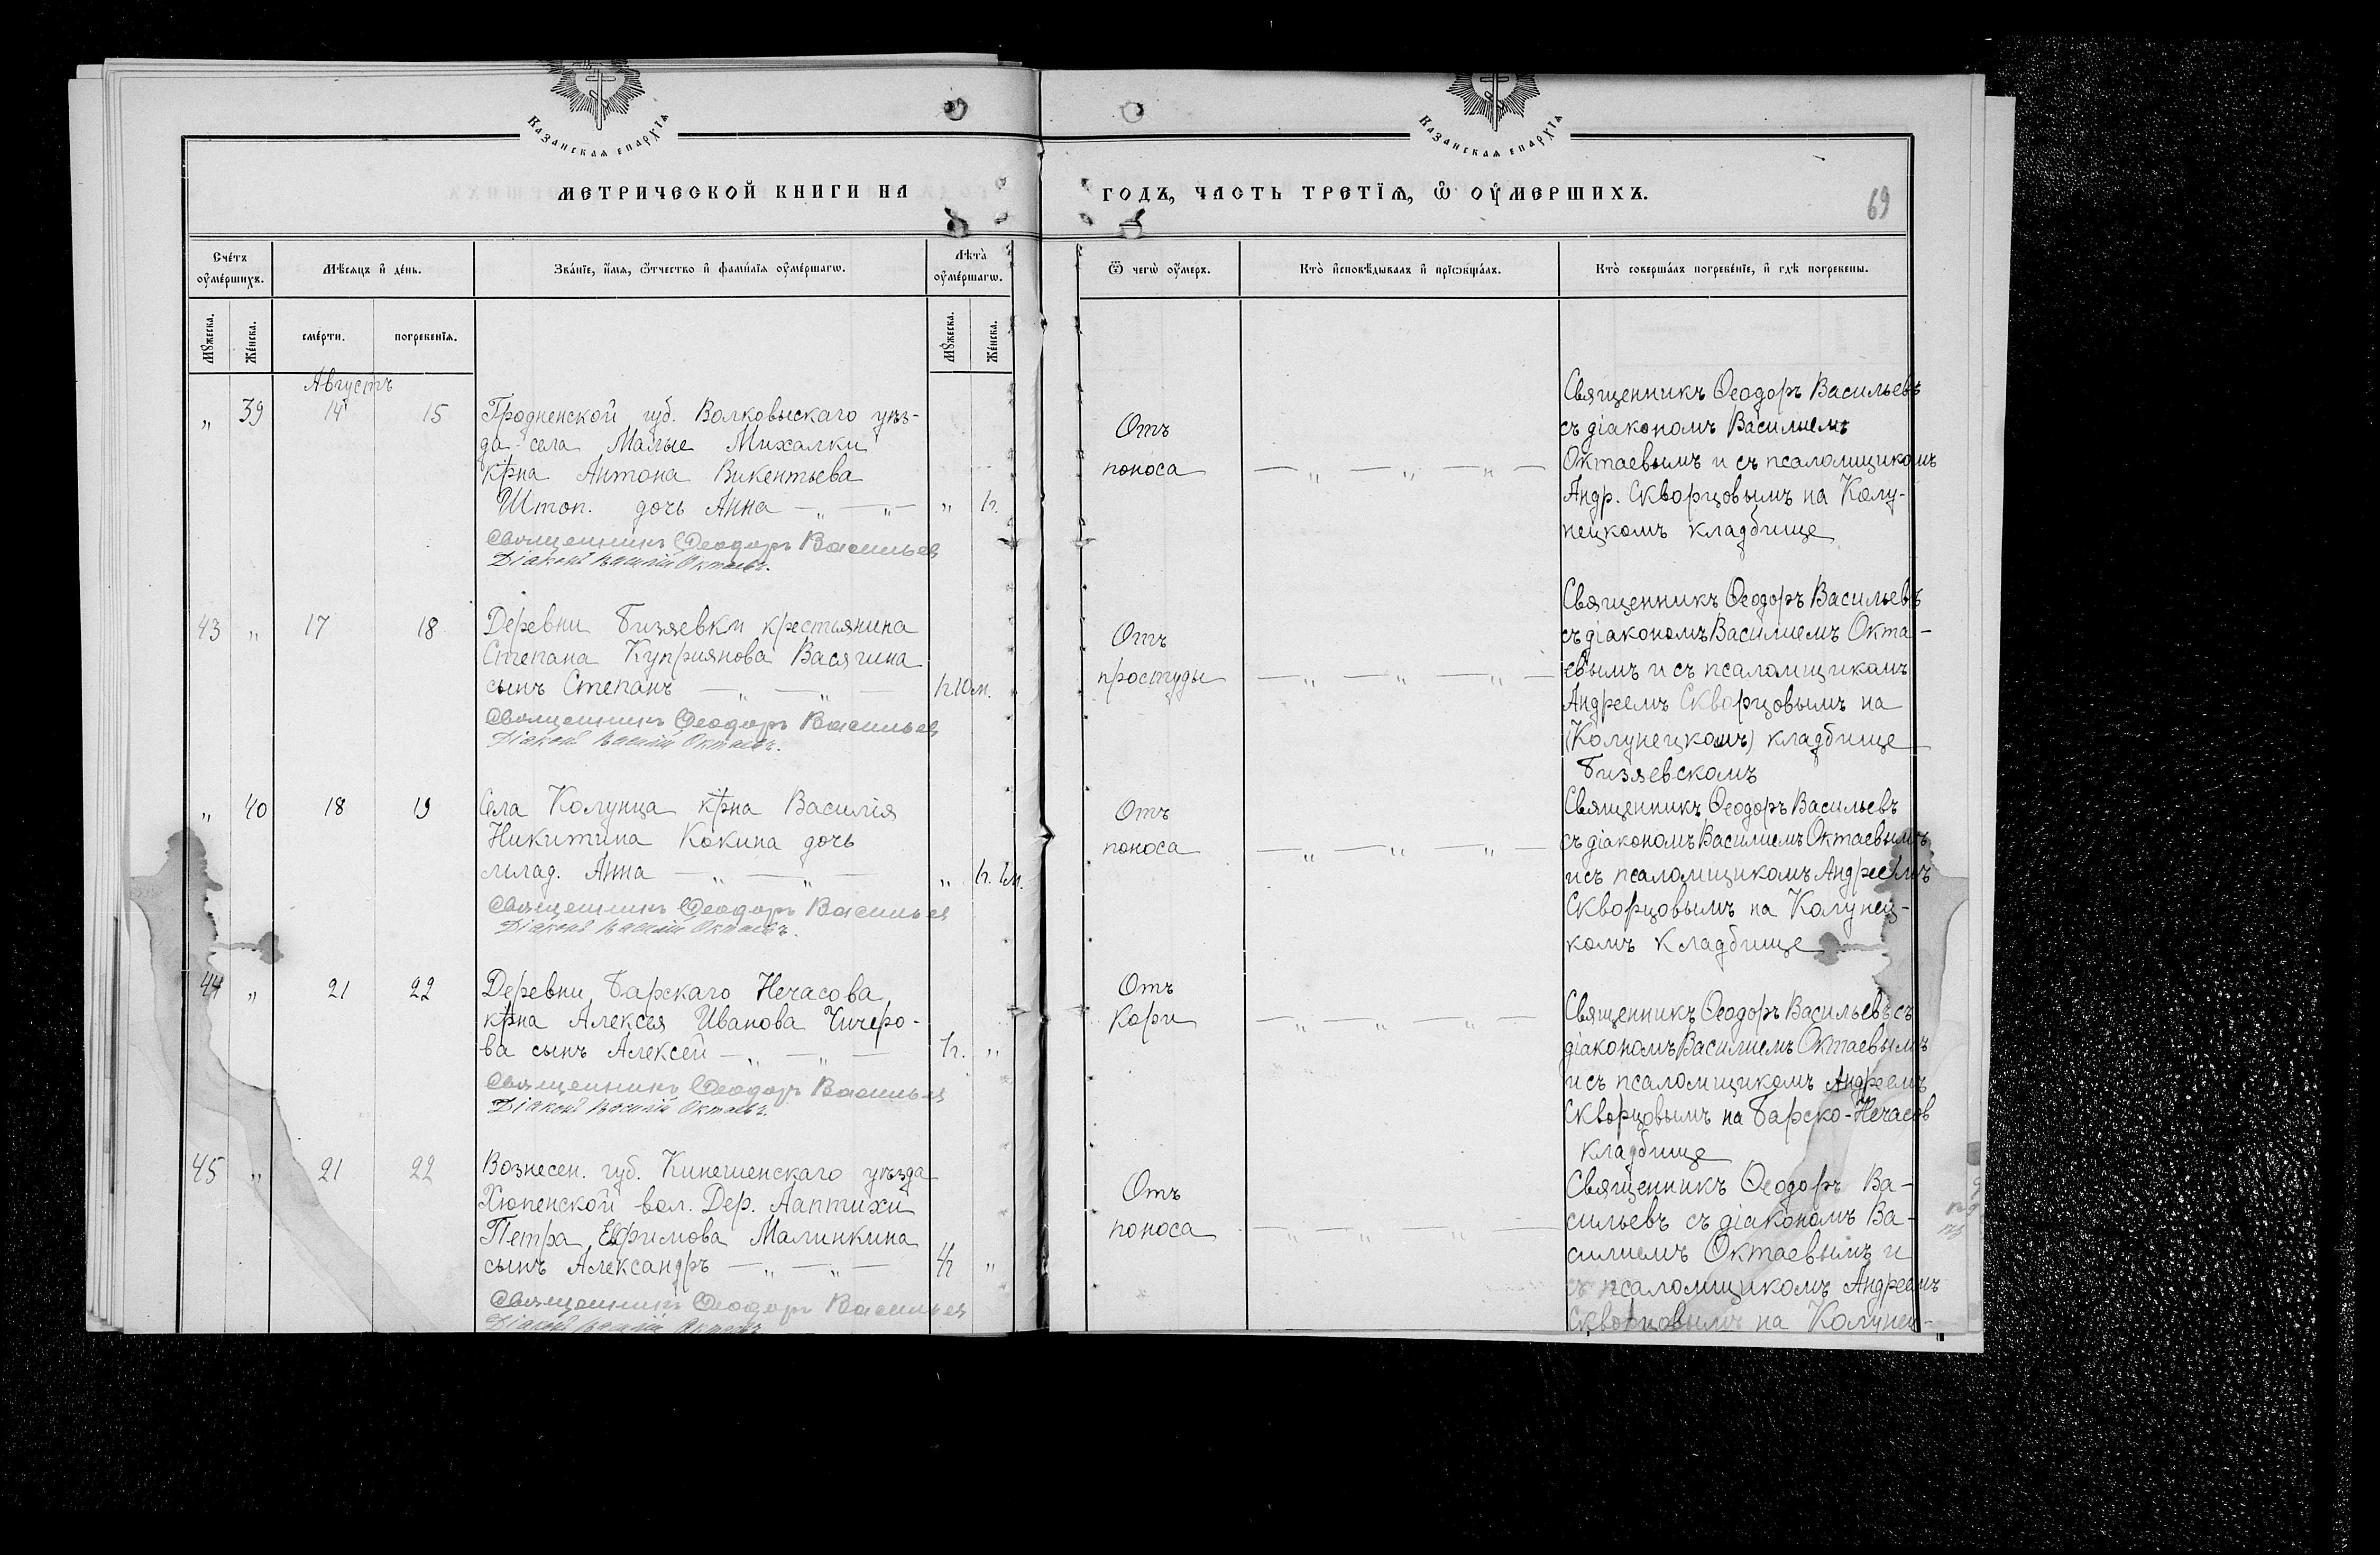 Казанская епархїѧ
Казанская епархїѧ
МЕТРИЧЕСКОЙ КНИГИ НА
ГОДЪ, ЧАСТЬ ТРЕТЇѦ, Ѡ ОУМЕРШИХЪ.
69
Счетъ оумершихъ.
Мѣсяцъ и день.
Званїе, имя, ѿчество и фамилїя оумершагѡ.
Лѣта оумершагѡ.
Ѿ чегѡ оумеръ.
Кто исповѣдывалъ и прїобщалъ.
Кто совершалъ погребенїе, и гдѣ погребены.
Мужеска.
Женска.
смерти.
погребенїя.
Мужеска.
Женска.
Августъ
„ 39 14 15
Гродненской губ. Волковыскаго уѣз-
да села Малые Михалки
крна Антона Викентьева
Штоп. дочь Анна — „ — „ — „ 1г.
Священникъ Ѳеодоръ Васильев
Діаконъ Василій Октаевъ.
Отъ
поноса — „ — „ — „ —
Священникъ Ѳеодоръ Васильевъ
съ діакономъ Василиемъ
Октаевымъ и съ псаломщикомъ
Андр. Скворцовымъ на Колу-
нецкомъ кладбище
43 „ 17 18
Деревни Бизяевки крестьянина
Степана Куприянова Васягина
сынъ Степанъ — „ — „ — 1г10м.
Священникъ Ѳеодоръ Васильев
Діаконъ Василій Октаевъ.
Отъ
простуды — „ — „ — „ —
Священникъ Ѳеодоръ Васильевъ
съ діакономъ Василиемъ Окта-
евымъ и съ псаломщикомъ
Андреемъ Скворцовымъ на
(Колунецкомъ) кладбище
Бизяевскомъ
„ 40 18 19
Села Колунца крна Василія
Никитина Кокина дочь
млад. Анна — „ — „ — „ 1г. 1м.
Священникъ Ѳеодоръ Васильев
Діаконъ Василій Октаевъ.
Отъ
поноса — „ — „ — „ —
Священникъ Ѳеодоръ Васильевъ
съ діакономъ Василиемъ Октаевымъ
и съ псаломщикомъ Андреемъ
Скворцовымъ на Колунец-
комъ кладбище
44 „ 21 22
Деревни Барскаго Нечасова
крна Алексѣя Иванова Чичеро-
ва сынъ Алексей — „ — „ — 1г. „
Священникъ Ѳеодоръ Васильев
Діаконъ Василій Октаевъ.
Отъ
Кори — „ — „ — „ —
Священникъ Ѳеодоръ Васильевъ съ
діакономъ Василиемъ Октаевымъ
и съ псаломщикомъ Андреемъ
Скворцовымъ на Барско-Нечасов
кладбище
45 „ 21 22
Вознесен. губ. Кинешенскаго уѣзда
Хюпенской вол. Дер. Лаптихи
Петра Ефримова Малинкина
сынъ Александръ — „ — „ — „
Священникъ Ѳеодоръ Васильев
Діаконъ Василій Октаевъ
Отъ
поноса — „ — „ — „ —
Священникъ Ѳеодоръ Ва-
сильевъ съ діакономъ Ва-
силиемъ Октаевымъ и
съ псаломщикомъ Андреемъ
Скворцовымъ на Колунец-